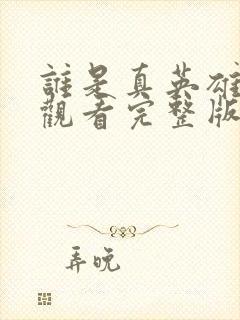 誰是真英雄
觀看完整版
弄晚